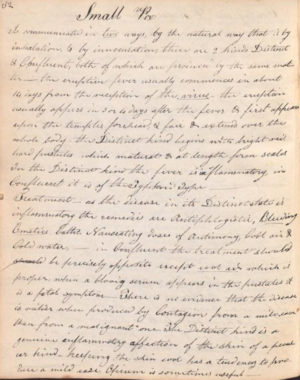 82
Small Pox
is communicated in two ways, by the natural way that is by
inoculation, & by innoculation, there are 2 kinds Distinct
& Confluent, both of which are produced by the same mat-
ter — the eruptive fever usually commences in about
14 days from the reception of the virus. the eruption
usually appears in 3 or 4 days after the fever & first appears
upon the temples, forehead, & face & extends over the
whole body. the Distinct kind begins with bright red
hard pustules which maturate & at length form scales
In the Distinct kind the fever is inflammatory, in
Confluent it is of the Typhoid Type
Treatment — as the disease in its Distinct state is
inflammatory the remedies are Antiphlogistic, Bleeding
Emetics Cathts Nauseating doses of Antimony, Cool air &
Cold water. — in Confluent the treatment should
be precisely opposite except cool air which is
proper. when a bloody serum appears in the pustules it
is a fatal symptom — There is no evidence that the disease
is milder when produced by Contagion from a mild case
than from a malignant one The Distinct kind is a
genuine inflammatory affection of the skin of a pecul-
iar kind. keeping the skin cool has a tendency to pro-
duce a mild case Opium is sometimes useful —